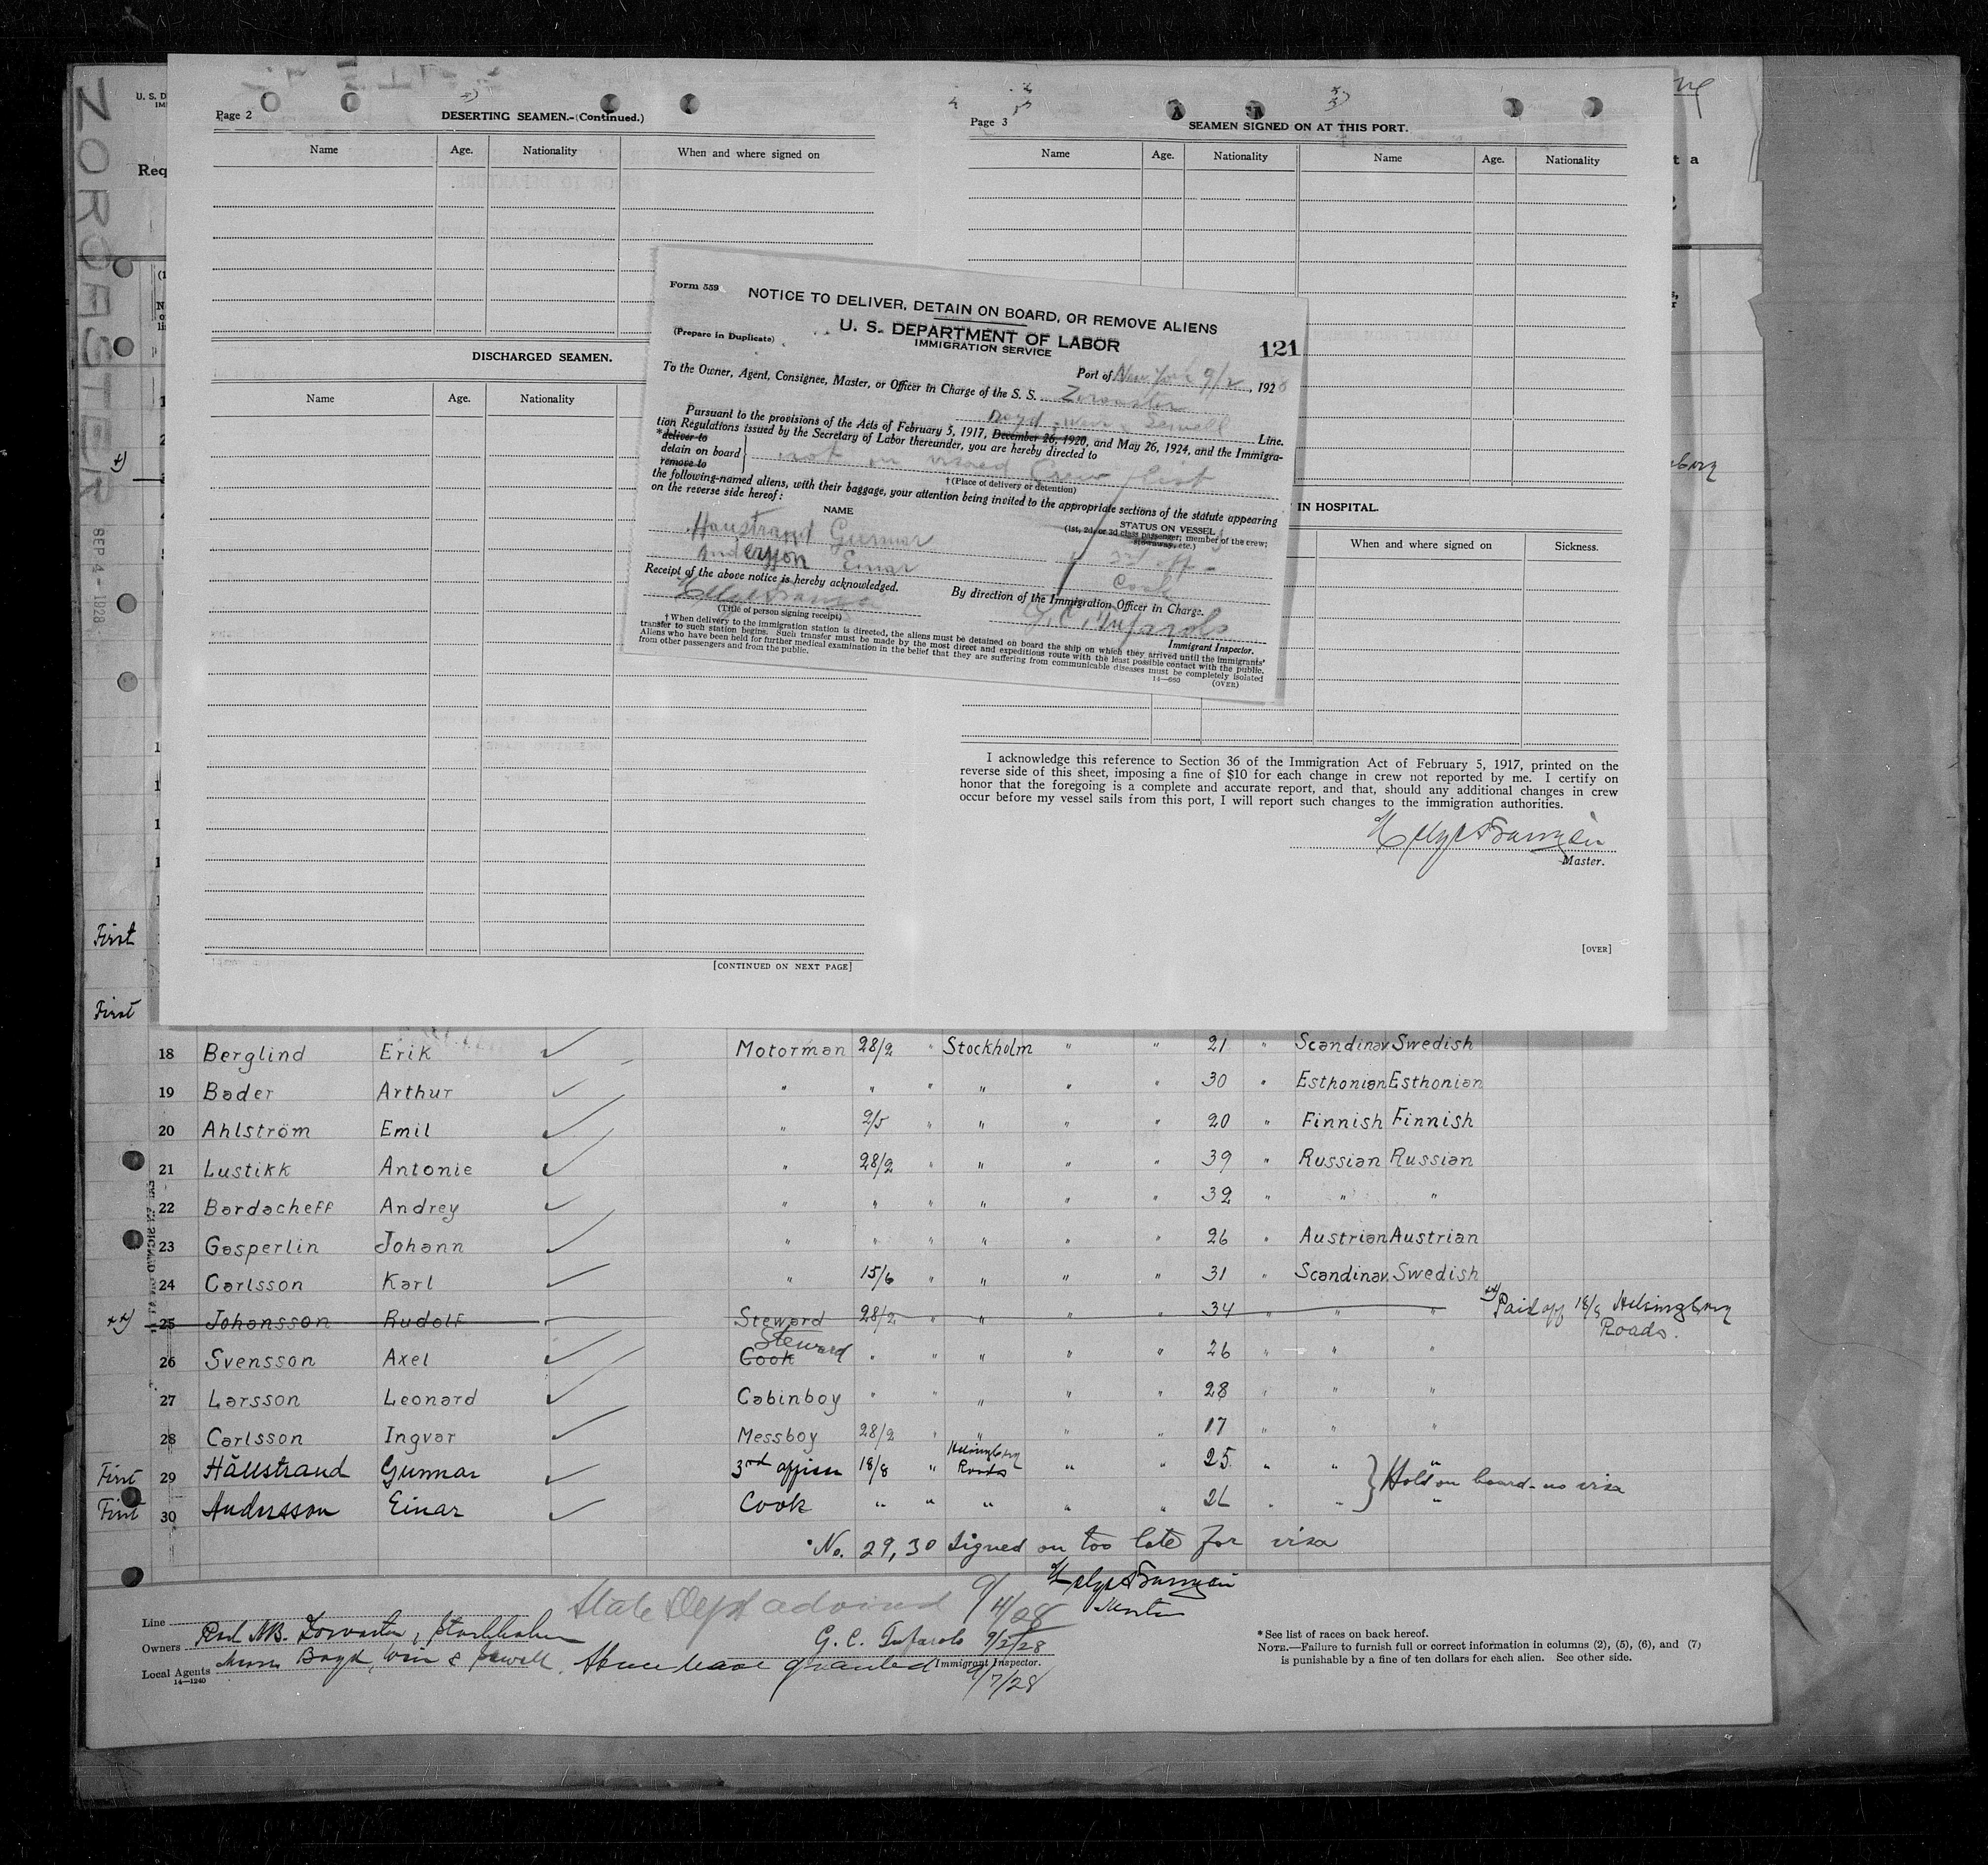 ZOROASTER
SEP 4 - 1928
U. S. D
Req
Page 2
DESERTING SEAMEN.—(Continued.)
Name Age. Nationality When and where signed on
DISCHARGED SEAMEN.
Name Age. Nationality
[CONTINUED ON NEXT PAGE]
Page 3
SEAMEN SIGNED ON AT THIS PORT.
Name Age. Nationality Name Age. Nationality
IN HOSPITAL.
When and where signed on Sickness.
Form 559
NOTICE TO DELIVER, DETAIN ON BOARD, OR REMOVE ALIENS
(Prepare in Duplicate)
U. S. DEPARTMENT OF LABOR
IMMIGRATION SERVICE
121
Port of New York 9/2, 1928
To the Owner, Agent, Consignee, Master, or Officer in Charge of the S. S. Zoroaster
Boyd, Weir & Sewell Line.
Pursuant to the provisions of the Acts of February 5, 1917, December 26, 1920, and May 26, 1924, and the Immigra-
tion Regulations issued by the Secretary of Labor thereunder, you are hereby directed to
*deliver to
detain on board
remove to
not on visaed Crew list
† (Place of delivery or detention)
the following-named aliens, with their baggage, your attention being invited to the appropriate sections of the statute appearing
on the reverse side hereof:
NAME
STATUS ON VESSEL
(1st, 2d, or 3d class passenger; member of the crew;
stowaway, etc.)
Haustrand Gunnar 3d off
Andersson Einar Cook
Receipt of the above notice is hereby acknowledged.
By direction of the Immigration Officer in Charge.
(Title of person signing receipt)
G. C. Tufarolo
Immigrant Inspector.
† When delivery to the immigration station is directed, the aliens must be detained on board the ship on which they arrived until the immigrants'
transfer to such station begins. Such transfer must be made by the most direct and expeditious route with the least possible contact with the public.
Aliens who have been held for further medical examination in the belief that they are suffering from communicable diseases must be completely isolated
from other passengers and from the public.
14—660
(OVER)
I acknowledge this reference to Section 36 of the Immigration Act of February 5, 1917, printed on the
reverse side of this sheet, imposing a fine of $10 for each change in crew not reported by me. I certify on
honor that the foregoing is a complete and accurate report, and that, should any additional changes in crew
occur before my vessel sails from this port, I will report such changes to the immigration authorities.
Master.
[OVER]
First
First
18 Berglind Erik Motorman 28/2 " Stockholm " " 21 " Scandinav. Swedish
19 Bader Arthur " " " " " " 30 " Esthonian Esthonian
20 Ahlström Emil " 2/5 " " " " 20 " Finnish Finnish
21 Lustikk Antonie " 28/2 " " " " 39 " Russian Russian
22 Bardacheff Andrey " " " " " " 32 " " "
23 Gasperlin Johann " " " " " " 26 " Austrian Austrian
24 Carlsson Karl " 15/6 " " " " 31 " Scandinav. Swedish
xx) 25 Johansson Rudolf Steward 28/2 " " " " 34 " " " xx) Paid off 18/8 Helsingborg
Roads.
26 Svensson Axel Cook Steward " " " " " 26 " " "
27 Larsson Leonard Cabinboy " " " " " 28 " " "
28 Carlsson Ingvar Messboy 28/2 " " " " 17 " " "
First 29 Hällstrand Gunnar 3rd officer 18/8 " Helsingborg Roads " " 25 " " " } Hold on board - no visa
First 30 Andersson Einar Cook " " " " " 26 " " "
No. 29, 30 signed on too late for visa
Master
State Dept advised 9/4/28
Line
Owners Red. AB. Zoroaster, Stockholm
Local Agents Messrs Boyd, Weir & Sewell.
14—1240
G. C. Tufarolo 9/2/28
Immigrant Inspector.
Shore leave granted 9/7/28
* See list of races on back hereof.
NOTE.—Failure to furnish full or correct information in columns (2), (5), (6), and (7)
is punishable by a fine of ten dollars for each alien. See other side.